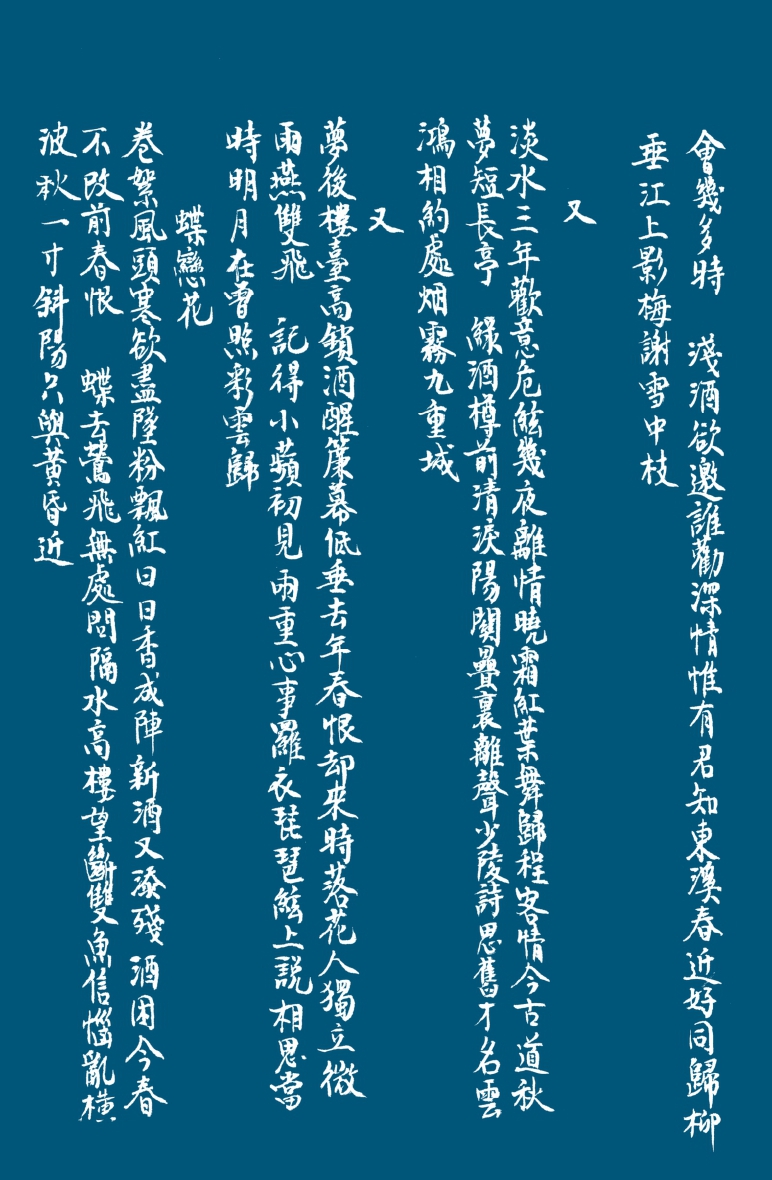 會幾多時　淺酒欲邀誰勸深情惟有君知東溪春近好同歸柳
垂江上影梅謝雪中枝
又
淡水三年歡意危絃幾夜離情曉霜紅葉舞歸程客情今古道秋
夢短長亭　綠酒樽前清淚陽關疊裏離聲少陵詩思舊才名雲
鴻相約處烟霧九重城
又
夢後樓臺高鎖酒醒簾幕低垂去年春恨却來時落花人獨立微
雨燕雙飛　記得小蘋初見兩重心事羅衣琵琶絃上說相思當
時明月在曾照彩雲歸
蝶戀花
卷絮風頭寒欲盡墜粉飄紅日日香成陣新酒又添殘酒困今春
不改前春恨　蝶去鶯飛無處問隔水高樓望斷雙魚信惱亂橫
波秋一寸斜陽只與黃昏近